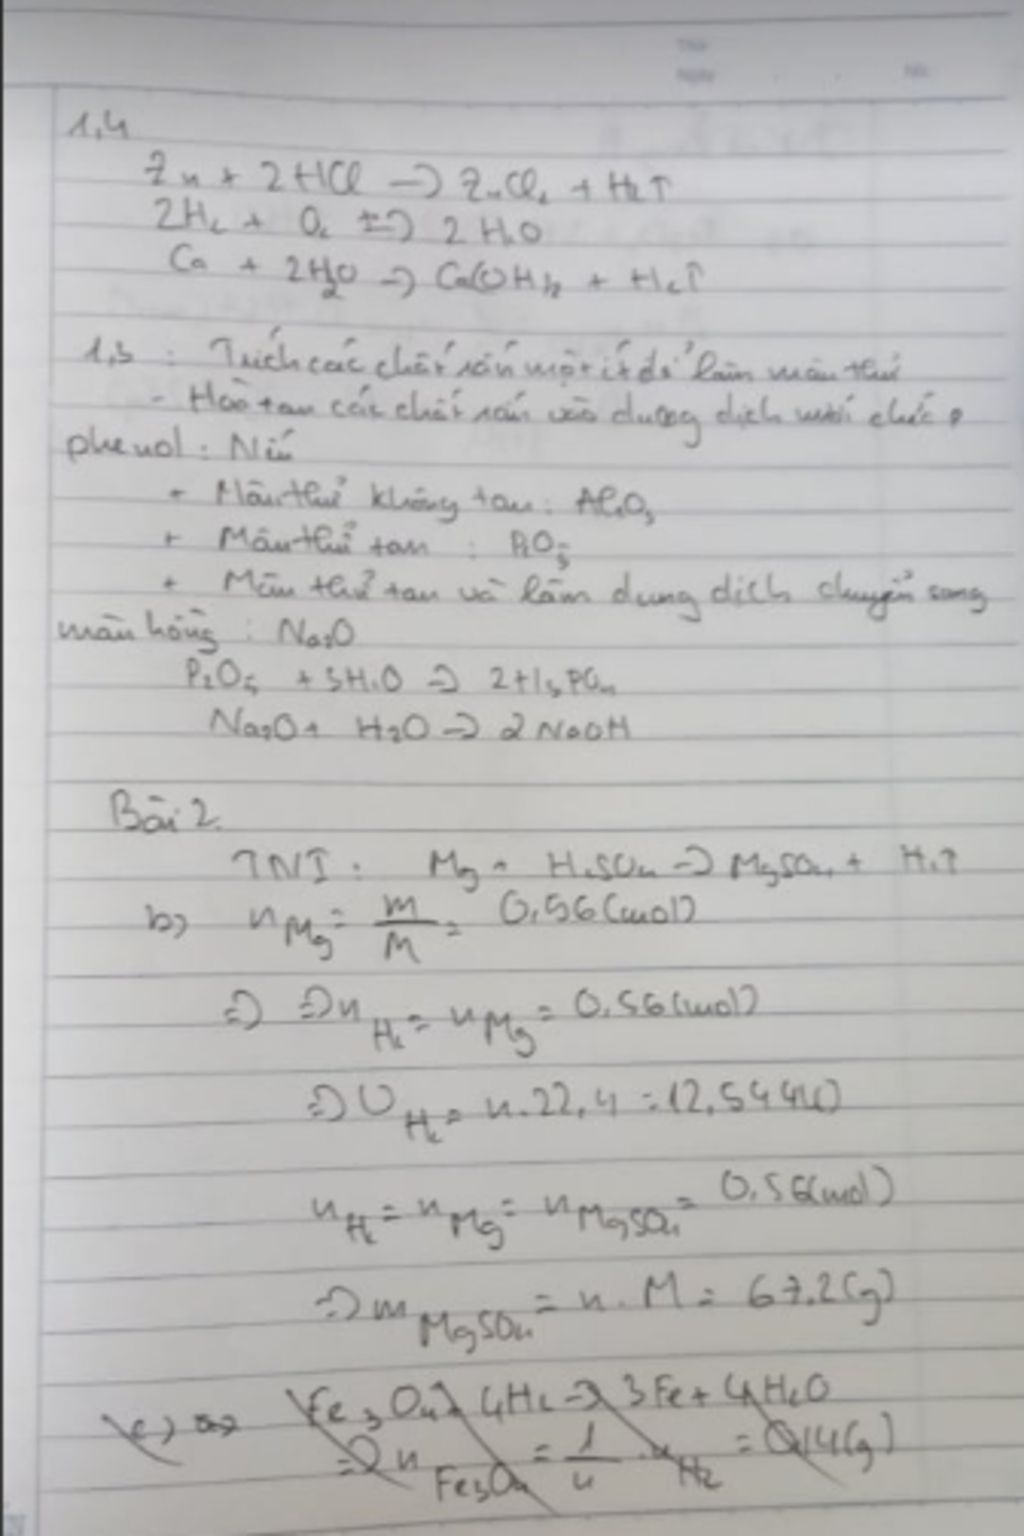 1,4
Zn + 2HCl → ZnCl₂ + H₂↑
2H₂ + O₂ ⇒ 2H₂O
Ca + 2H₂O → Ca(OH)₂ + H₂↑
1,3 : Trích các chất rắn một ít để làm mẫu thử
- Hoà tan các chất rắn vào dung dịch nước chứa p
phenol : Nếu
+ Mẫu thử không tan : Al₂O₃
+ Mẫu thử tan : P₂O₅
+ Mẫu thử tan và làm dung dịch chuyển sang
màu hồng : Na₂O
P₂O₅ + 3H₂O → 2H₃PO₄
Na₂O + H₂O → 2NaOH
Bài 2.
TN1 : Mg + H₂SO₄ → MgSO₄ + H₂↑
b) n Mg = m/M = 0,56(mol)
⇒ ⇒ n H₂ = n Mg = 0,56(mol)
⇒ V H₂ = n.22,4 = 12,544(l)
n H₂ = n Mg = n MgSO₄ = 0,56(mol)
⇒ m MgSO₄ = n . M = 67,2(g)
c) Fe₃O₄ + 4H₂ → 3Fe + 4H₂O
⇒ n Fe₃O₄ = 1/4 . n H₂ = 0,14(g)